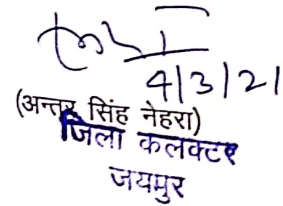 4/3/21
(अन्तर सिंह नेहरा)
जिला कलक्टर
जयपुर